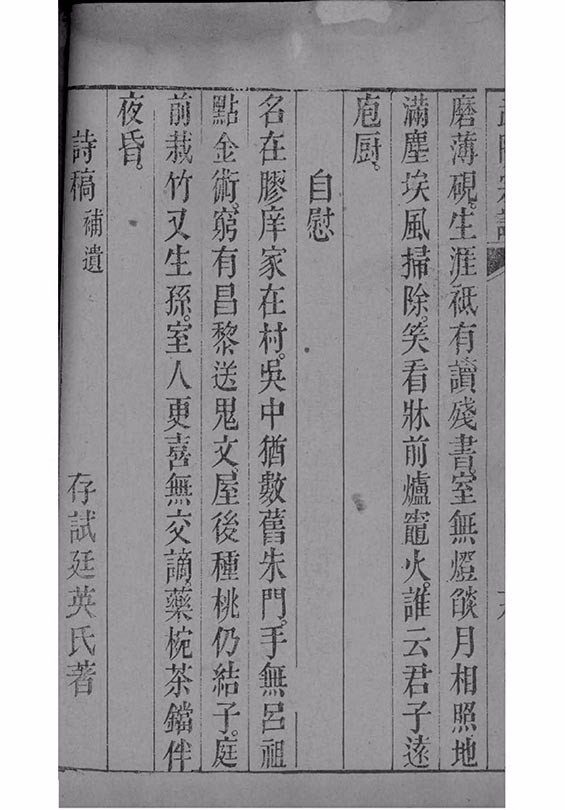 磨薄硯。生涯祗有讀殘書。室無燈燄月相照。地
滿塵埃風掃除。笑看牀前爐竈火。誰云君子遠
庖厨。
自慰
名在膠庠家在村。吳中猶數舊朱門。手無呂祖
點金術。窮有昌黎送鬼文。屋後種桃仍結子。庭
前栽竹又生孫。室人更喜無交謫。藥椀茶鐺伴
夜昏。
詩稿 補遺 存試廷英氏著